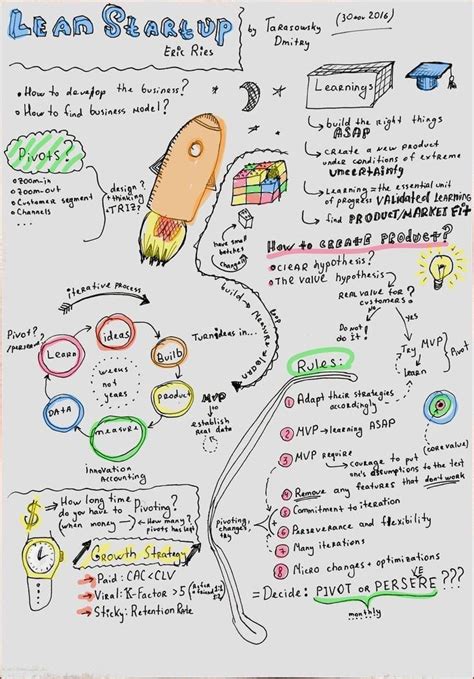 LEAN STARTUP
Eric Ries
by Tarasowsky
Dmitry
(30 Nov 2016)
• How to develop the business?
• How to find business model?
Pivots?
• Zoom-in
• Zoom-out
• Customer segment
• Channels
design?
+ thinking
TRIZ?
Learnings
build the right things
ASAP
create a new product
under conditions of extreme
uncertainty
Learning = the essential unit
of progress VALIDATED LEARNING
find PRODUCT/MARKET FIT
have small
batches
changing
HOW to CREATE PRODUCT?
• CLEAR hypothesis?
• The value hypothesis
REAL value for
customers?
Do not!
do it!
yes
Try
MVP
Learn
Pivot
build → measure → learn
iterative process
Pivot?
ideas
Build
product
measure
DATA
Learn
weeks
not
years
Turn ideas in...
MVP
establish
real data
Innovation
Accounting
Rules:
1 Adapt their strategies
accordingly
2 MVP → learning ASAP
3 MVP require
courage to put
one's assumptions to the test
(core value)
4 Remove any features that don't work
5 Commitment to iteration
6 Perseverance and flexibility
7 Many iterations
8 Micro changes + optimizations
= Decide: PIVOT OR PERSEVERE ???
monthly
pivoting,
changes,
try
$
How long time
do you have to Pivoting?
(when money → ← How many?
pivots has left)
Growth Strategy
→ Paid: CAC < CLV
→ Viral: K-Factor > 5
→ Sticky: Retention Rate